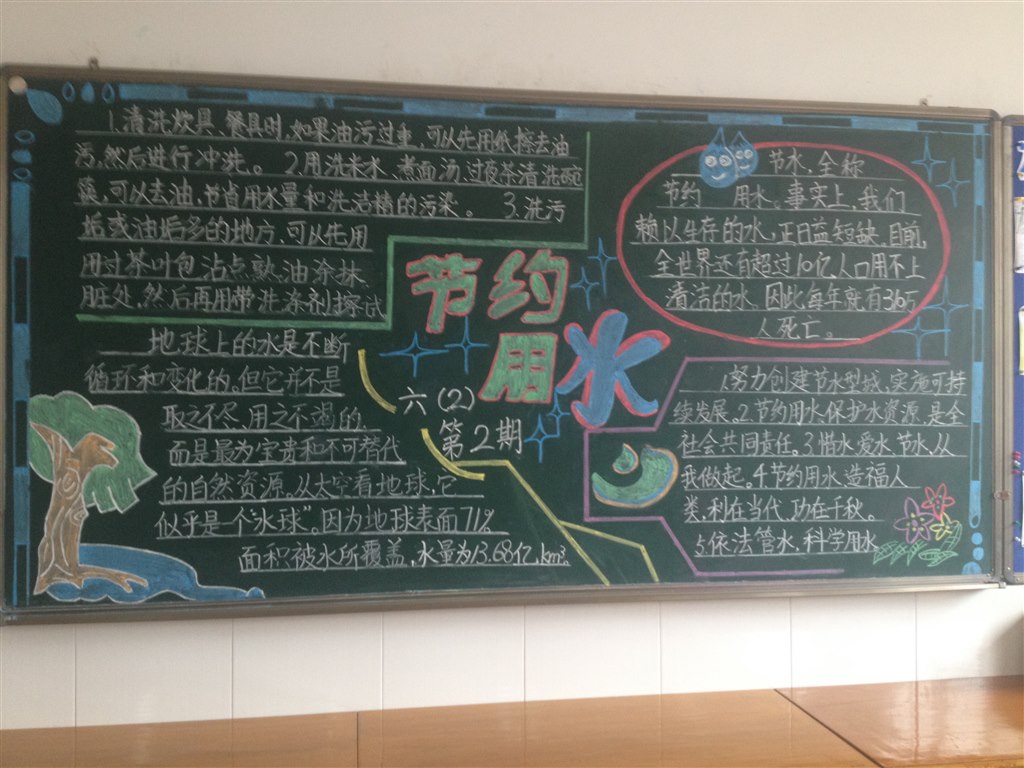 1.清洗炊具、餐具时,如果油污过重,可以先用纸擦去油
污,然后进行冲洗。 2.用洗米水、煮面汤、过夜茶清洗碗
筷,可以去油,节省用水量和洗洁精的污染。 3.洗污
垢或油垢多的地方,可以先用
用过茶叶包沾点熟油涂抹
脏处,然后再用带洗涤剂擦试
地球上的水是不断
循环和变化的。但它并不是
取之不尽、用之不竭的。
而是最为宝贵和不可替代
的自然资源。从太空看地球,它
似乎是一个“水球”。因为地球表面71%
面积被水所覆盖,水量为13.68亿km³
节约
用水
六(2)
第2期
节水,全称
节约 用水。事实上,我们
赖以生存的水,正日益短缺。目前,
全世界还有超过10亿人口用不上
清洁的水。因此每年就有310万
人死亡。
1.努力创建节水型城,实施可持
续发展。2.节约用水保护水资源,是全
社会共同责任。3.惜水、爱水、节水,从
我做起。4.节约用水造福人
类,利在当代,功在千秋。
5.依法管水,科学用水